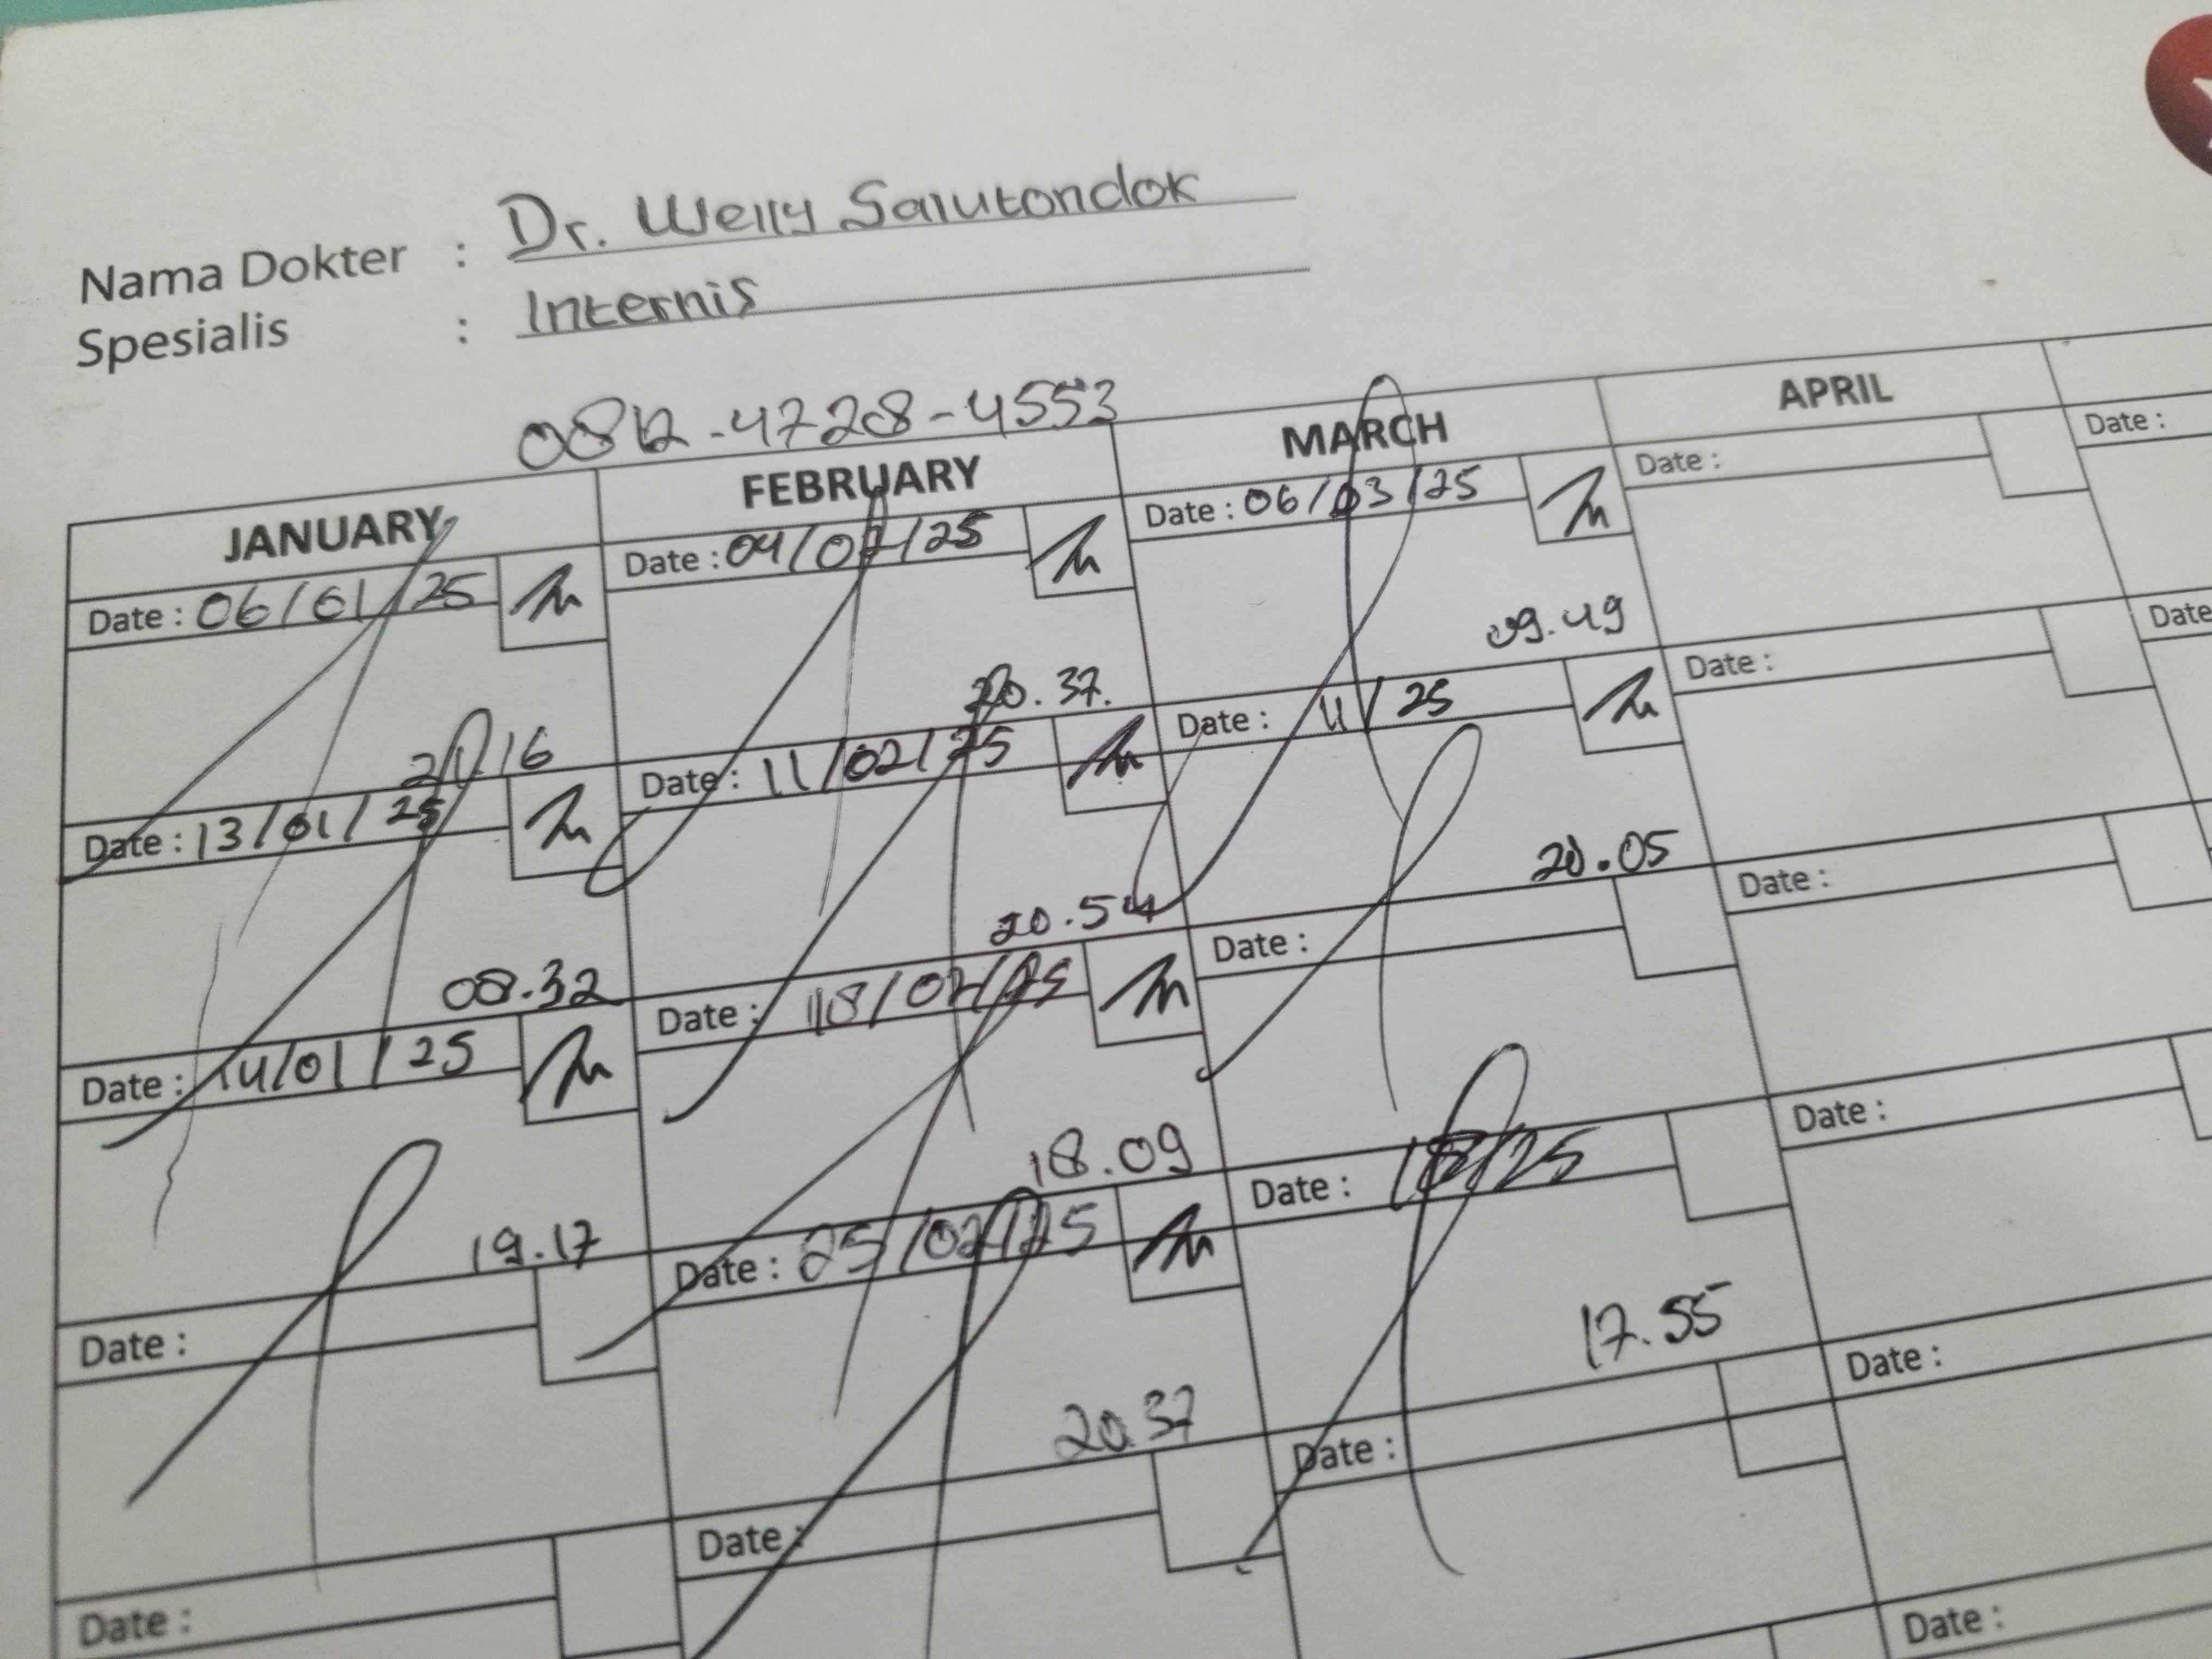 Nama Dokter : Dr. Welly Salutondok
Spesialis : Internis
0812-4728-4553
JANUARY FEBRUARY MARCH APRIL
Date : 06/01/25 Date : 04/02/25 Date : 06/03/25 Date : Date :
16 20.37. 09.49
Date : 13/01/25 Date : 11/02/25 Date : 11/25 Date : Date
08.32 20.54 20.05
Date : 14/01/25 Date : 18/02/25 Date : Date :
19.17 18.09
Date : Date : 25/02/25 Date : 18/25 Date :
20.37 17.55
Date : Date : Date : Date :
Date :